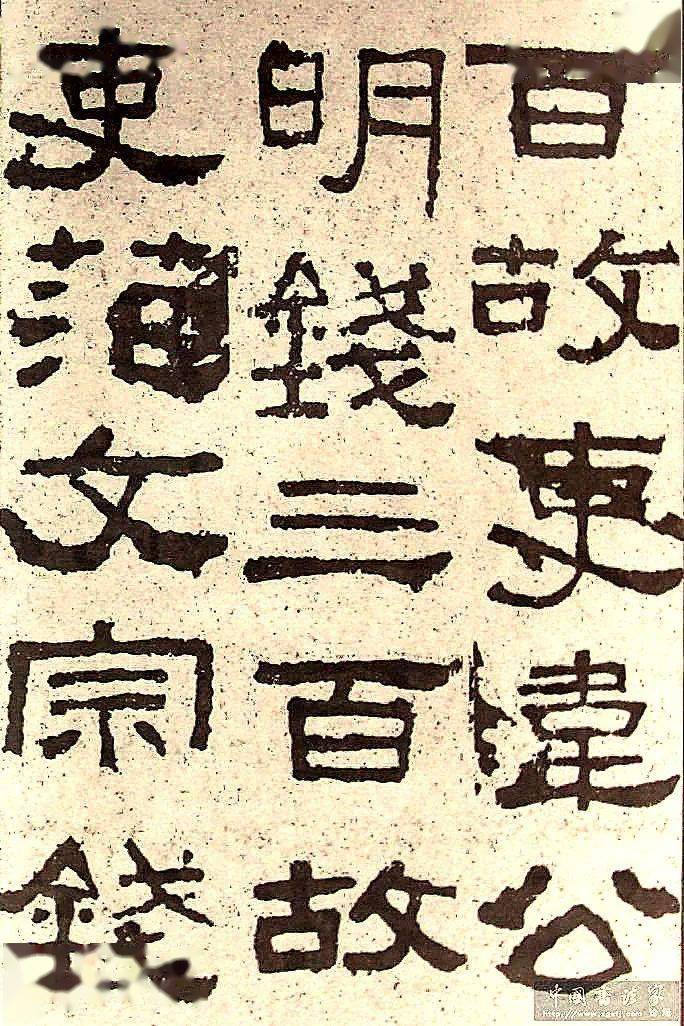 百故吏韋公
明錢三百故
吏范文宗錢
中國書法家